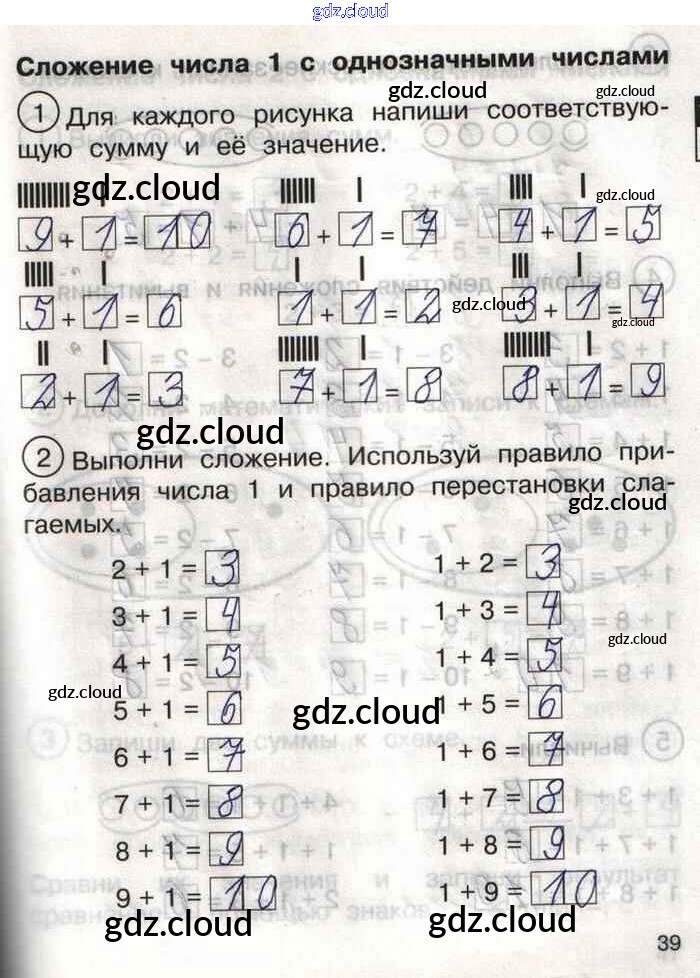 gdz.cloud
Сложение числа 1 с однозначными числами
gdz.cloud
gdz.cloud
1 Для каждого рисунка напиши соответствую-
щую сумму и её значение.
gdz.cloud
gdz.cloud
9 + 1 = 10 6 + 1 = 7 4 + 1 = 5
gdz.cloud
5 + 1 = 6 1 + 1 = 2 3 + 1 = 4
gdz.cloud
2 + 1 = 3 7 + 1 = 8 8 + 1 = 9
gdz.cloud
2 Выполни сложение. Используй правило при-
бавления числа 1 и правило перестановки сла-
гаемых.
gdz.cloud
2 + 1 = 3 1 + 2 = 3
3 + 1 = 4 1 + 3 = 4
gdz.cloud
4 + 1 = 5 1 + 4 = 5
gdz.cloud
5 + 1 = 6 1 + 5 = 6
gdz.cloud
6 + 1 = 7 1 + 6 = 7
7 + 1 = 8 1 + 7 = 8
8 + 1 = 9 1 + 8 = 9
9 + 1 = 10 1 + 9 = 10
gdz.cloud gdz.cloud
39